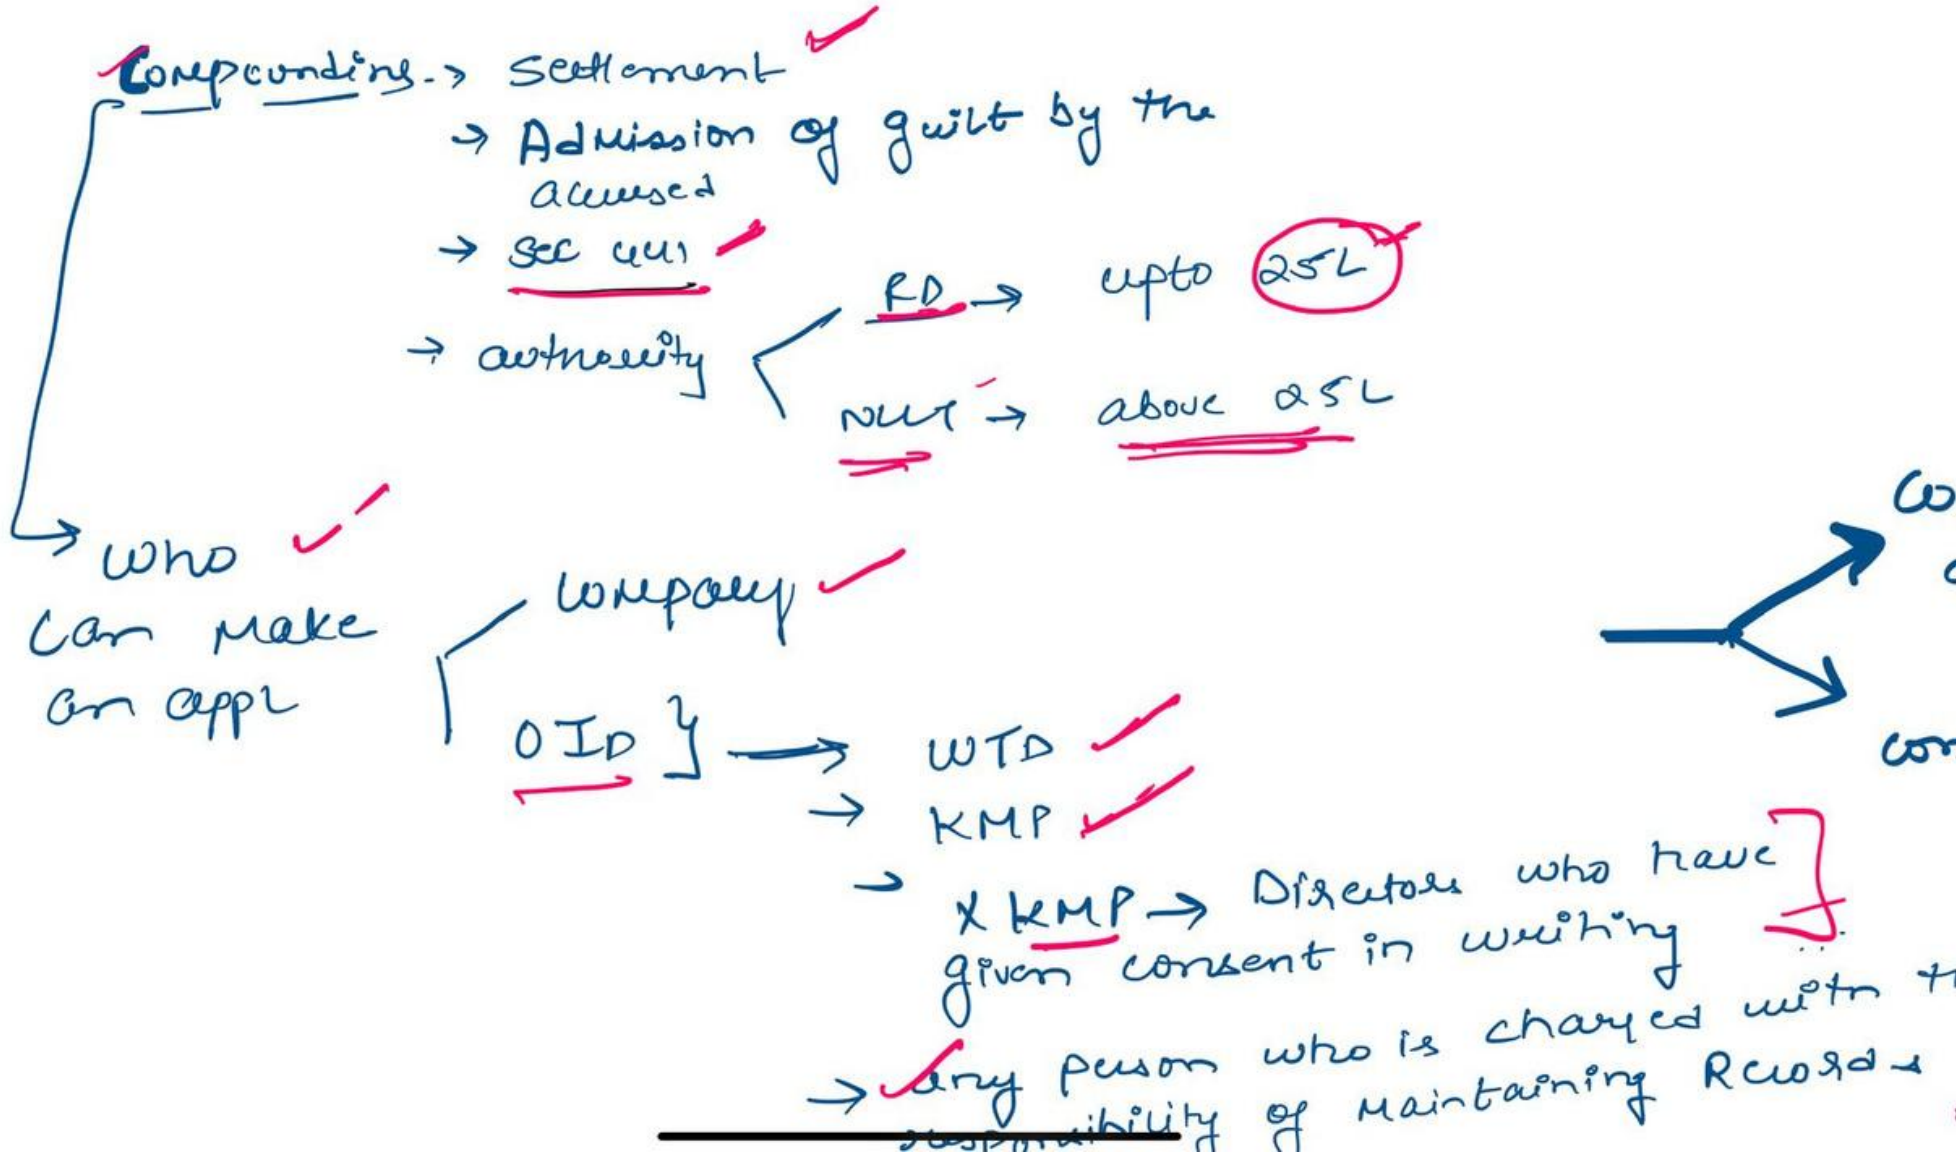 Compounding → Settlement
→ Admission of guilt by the
accused
→ Sec 441
→ authority
RD → upto 25L
NCLT → above 25L
who
can make
an appl
Company
OID } → WTD
→ KMP
→ X KMP → Directors who have
given consent in writing
→ Any person who is charged with
responsibility of Maintaining Records